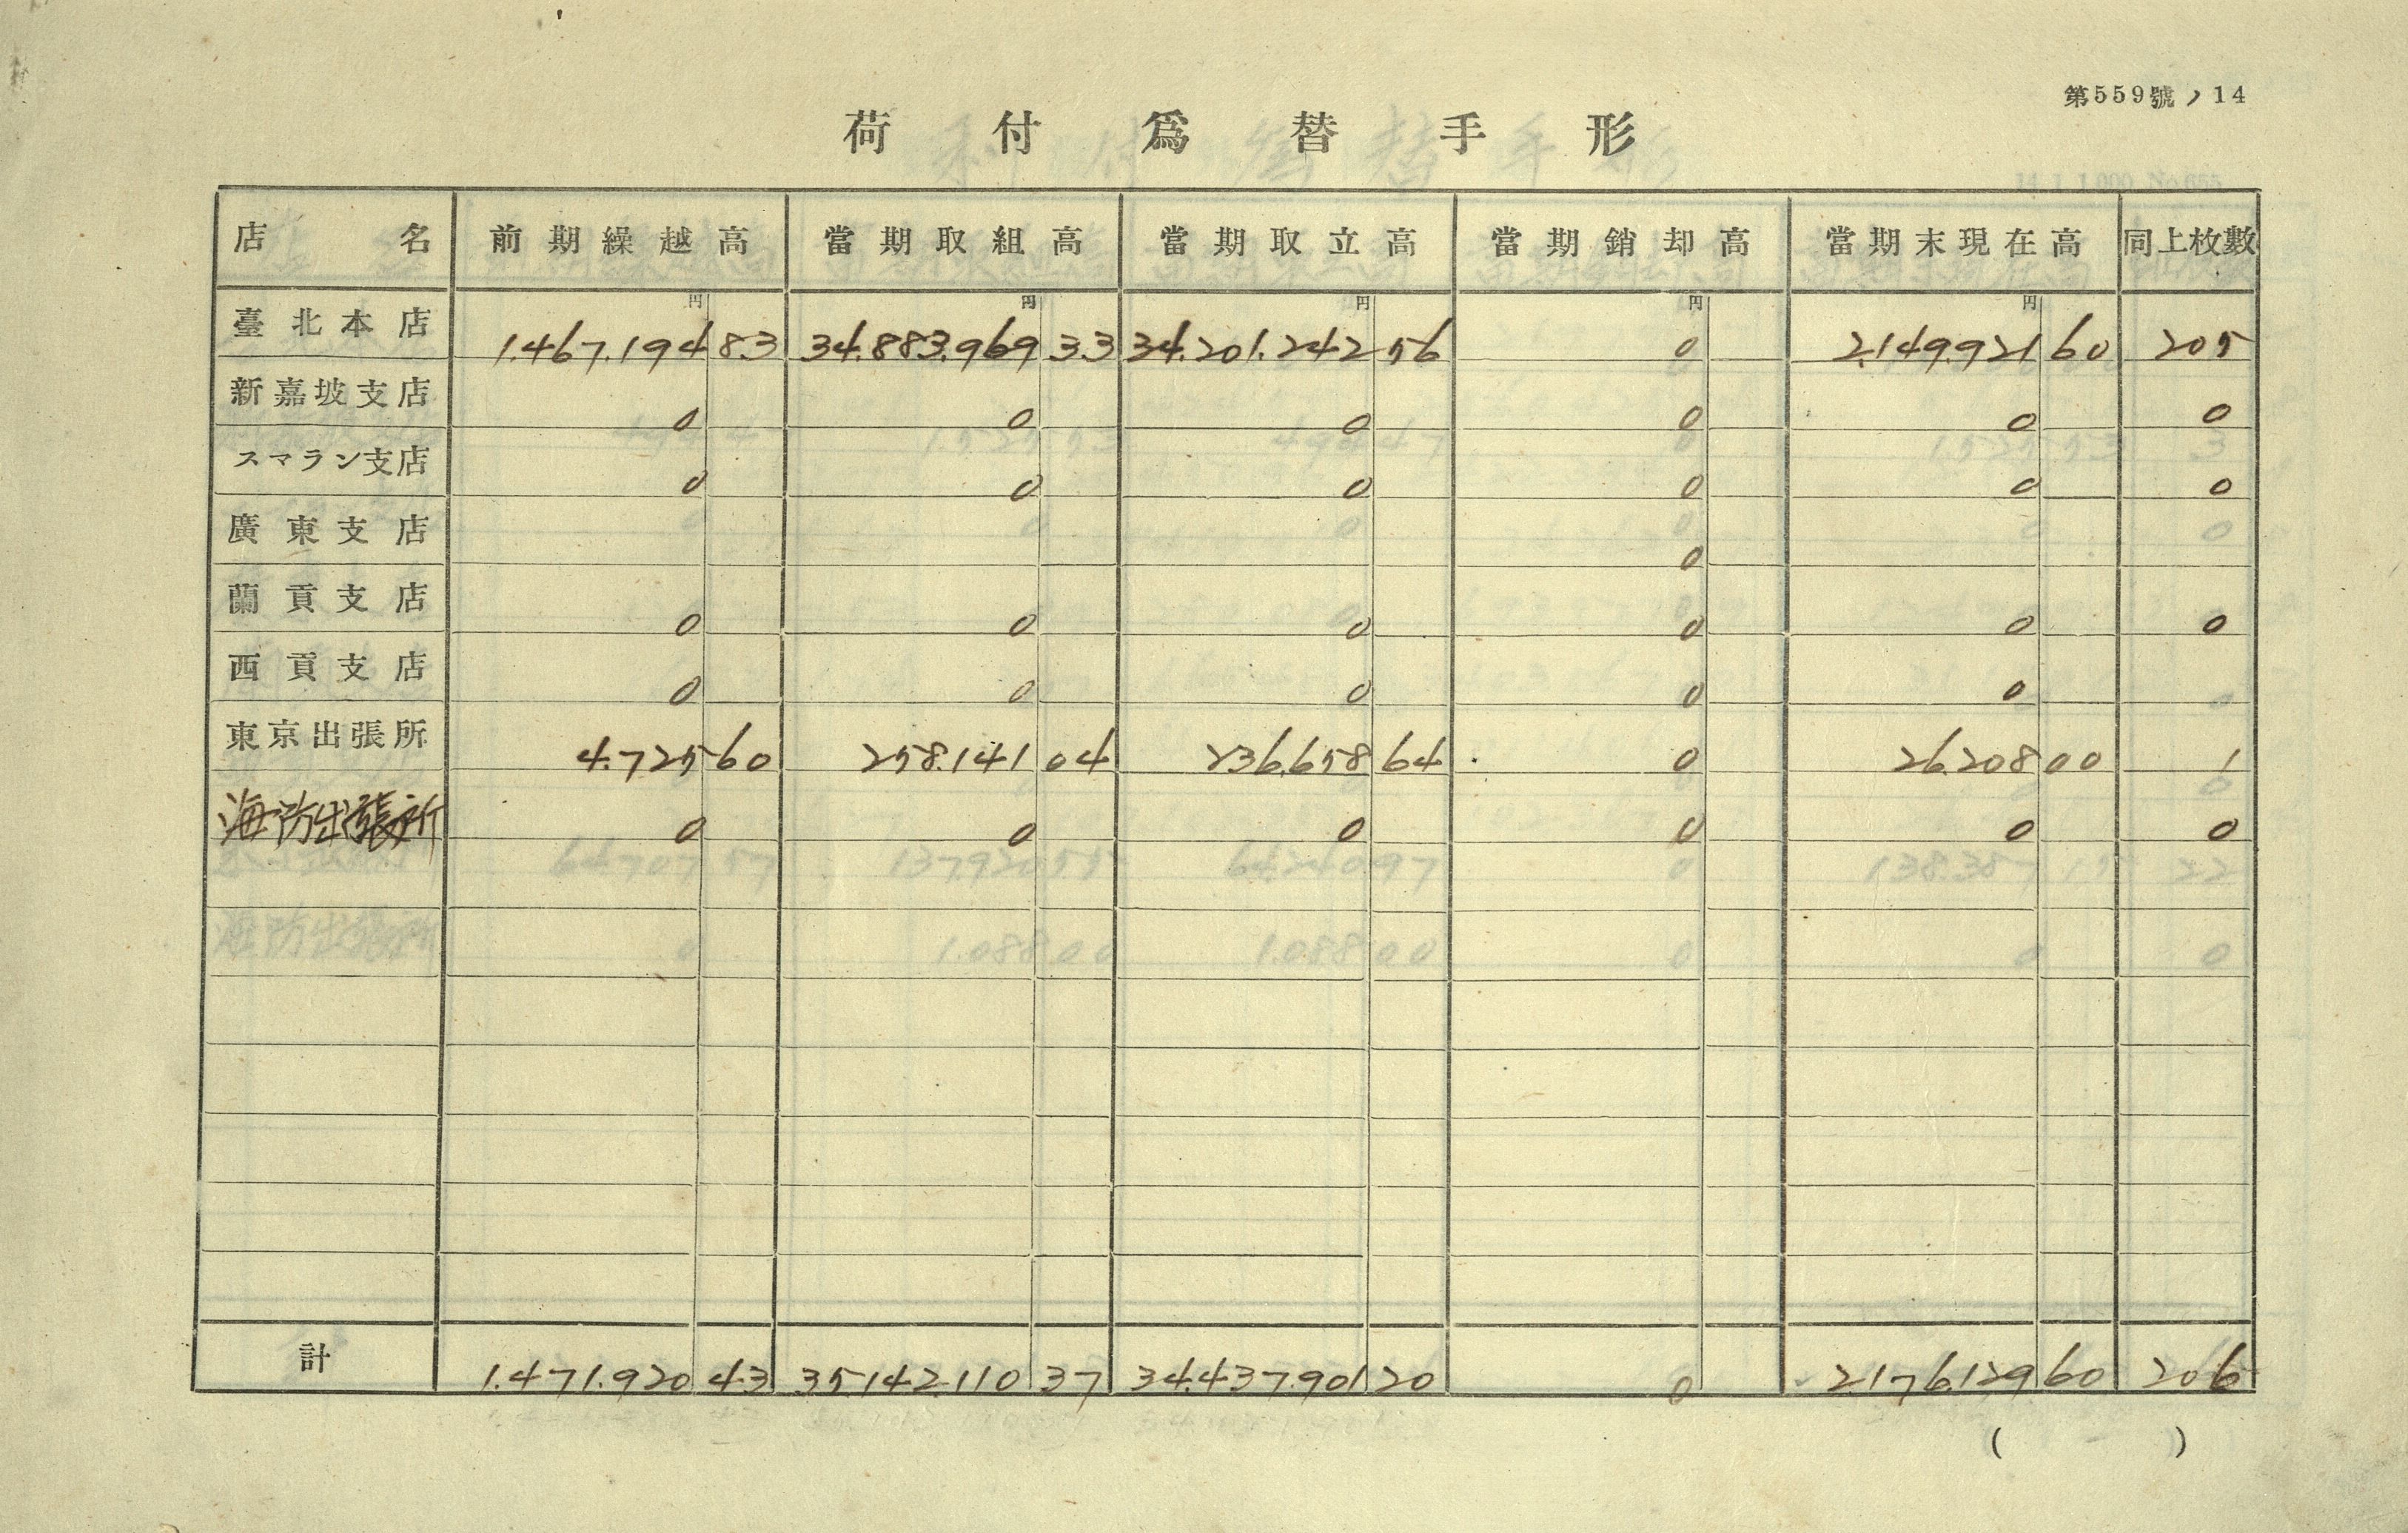 第559號ノ14
荷付爲替手形
店名 前期繰越高 當期取組高 當期取立高 當期銷却高 當期末現在高 同上枚數
円 円 円 円 円
臺北本店 1.467.194 83 34.883.969 33 34.201.242 56 0 2.149.921 60 205
新嘉坡支店 0 0 0 0 0 0
スマラン支店 0 0 0 0 0 0
廣東支店 0
蘭貢支店 0 0 0 0 0 0
西貢支店 0 0 0 0 0 0
東京出張所 4.725 60 258.141 04 236.658 64 0 26.208 00 1
海防出張所 0 0 0 0 0 0
計 1.471.920 43 35.142.110 37 34.437.901 20 0 2.176.129 60 206
( )